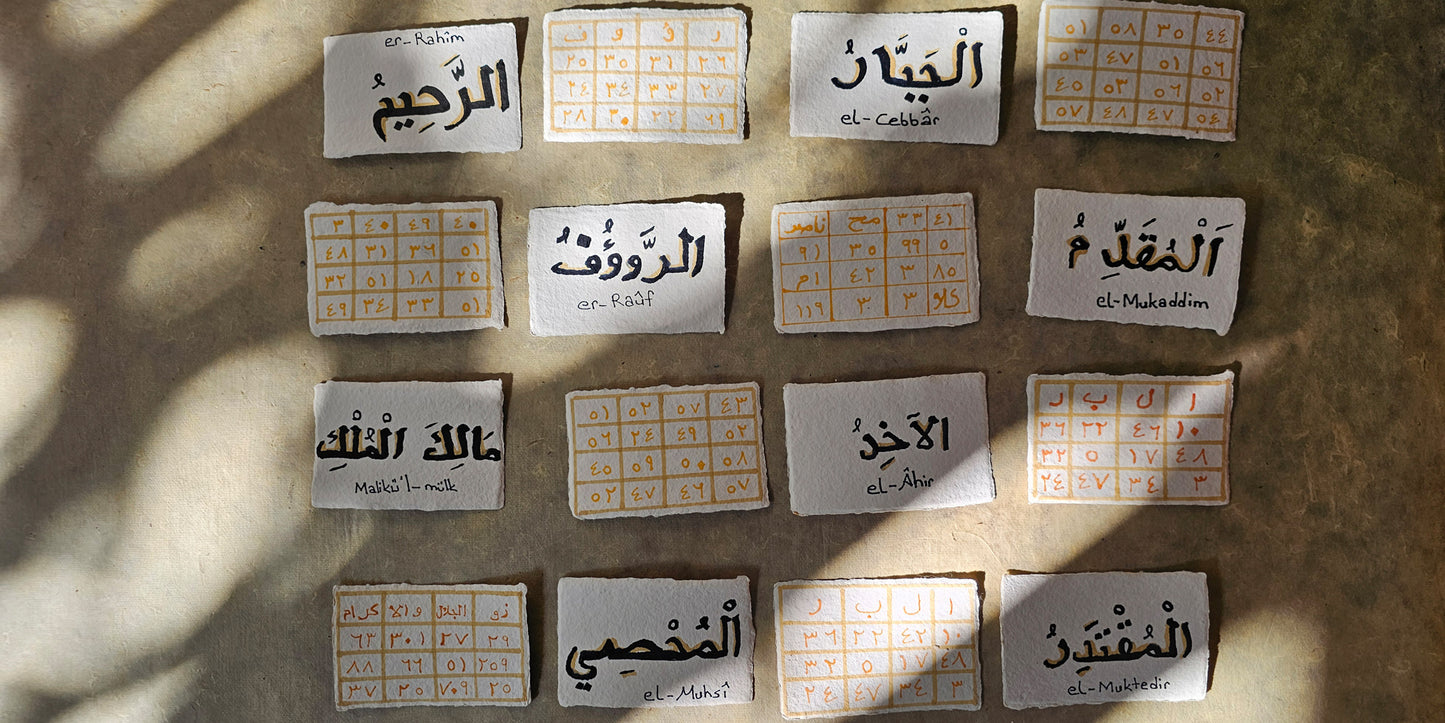 er-Rahîm
الرَّحِيمُ
ر ؤ و ف
٢٦ ٣١ ٣٥ ٢٥
٢٧ ٣٣ ٣٤ ٢٤
٢٩ ٢٢ ٣٠ ٢٨
الْجَبَّارُ
el-Cebbâr
٤٤ ٣٥ ٥٨ ٥١
٥٦ ٥١ ٤٧ ٥٣
٥٢ ٥٦ ٥٣ ٤٥
٥٤ ٤٧ ٤٨ ٥٧
٤٠ ٤٩ ٤٠ ٣
٥١ ٣٦ ٣١ ٤٨
٢٥ ١٨ ٥١ ٣٢
٥١ ٣٣ ٣٤ ٤٩
الرَّوؤُفُ
er-Raûf
٤١ ٣٣ مح
٥ ٩٩ ٣٥ ٩١
٨٥ ٣ ٤٢ ام
٣ ٣٠ ١١٩
اَلْمُقَدِّمُ
el-Mukaddim
مَالِكَ الْمُلْكِ
Malikü'l-mülk
٤٣ ٥٧ ٥٢ ٥١
٥٢ ٤٩ ٢٤ ٥٦
٥٨ ٥٠ ٥٩ ٤٥
٥٧ ٤٦ ٤٧ ٥٢
الآخِرُ
el-Âhir
ا ل ب ر
١٠ ٤٦ ٢٢ ٣٦
٤٨ ١٧ ٥ ٣٢
٣ ٣٤ ٤٧ ٢٤
ذو الجلال والا كرام
٢٩ ٢٧ ٣٠١ ٦٣
٢٥٩ ٥١ ٦٦ ٨٨
٢٥ ٧٠٩ ٢٥ ٣٧
الْمُحْصِي
el-Muhsî
ا ل ب ر
١٠ ٤٢ ٢٢ ٣٦
٤٨ ١٧ ٥ ٣٢
٣ ٣٤ ٤٧ ٢٤
الْمُقْتَدِرُ
el-Muktedir